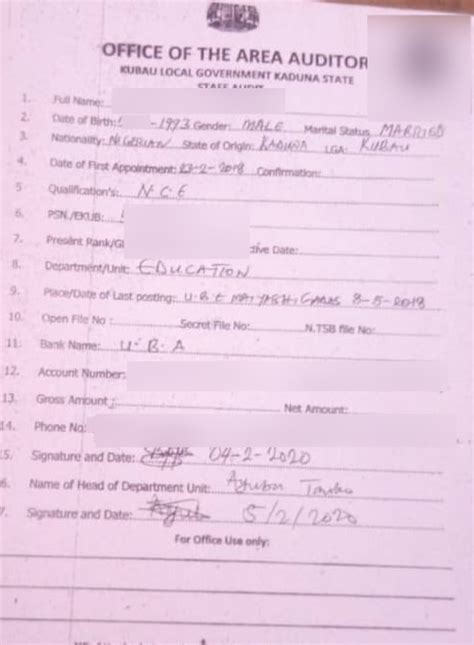 OFFICE OF THE AREA AUDITOR
KUBAU LOCAL GOVERNMENT KADUNA STATE
STAFF AUDIT
1. Full Name:
2. Date of Birth: -1993 Gender: MALE Marital Status MARRIED
3. Nationality: NIGERIAN State of Origin: KADUNA LGA: KUBAU
4. Date of First Appointment: 23-2-2018 Confirmation:
5 Qualification's: N.C.E
6. PSN./EKUB:
7. Present Rank/Gl tive Date:
8. Department/Unit: EDUCATION
9. Place/Date of Last posting: U.B.E 8-5-2018
10. Open File No : Secret File No: N.TSB file No:
11. Bank Name: U.B.A
12. Account Number:
13. Gross Amount : Net Amount:
14. Phone No:
5. Signature and Date: 04-2-2020
6. Name of Head of Department Unit:
7. Signature and Date: 5/2/2020
For Office Use only: